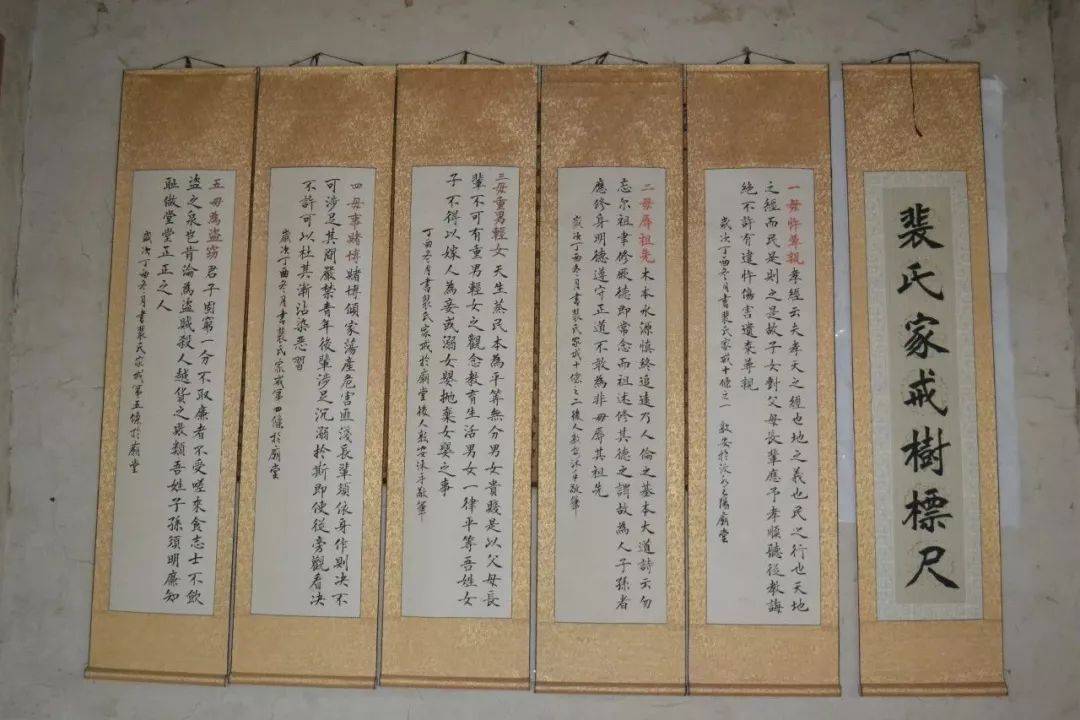 裴氏家戒樹標尺
一毋忤尊親孝經云夫孝天之經也地之義也民之行也天地
之經而民是則之是故子女對父母長輩應予孝順聽從教誨
絕不許有違忤傷害遺棄尊親
歲次丁酉冬月書裴氏家戒十條之一 敬安於
廟堂
二毋辱祖先木本水源慎終追遠乃人倫之基本大道詩云勿
忘尔祖聿修厥德即常念而祖述修其德之謂故為人子孫者
應修身明德遵守正道不敢為非毋辱其祖先
歲次丁酉冬月書裴氏家戒十條之二後人敬安沐手敬筆
三毋重男輕女天生蒸民本為平等無分男女貴賤是以父母長
輩不可有重男輕女之觀念教育生活男女一律平等吾姓女
子不得以嫁人為妾或溺女嬰拋棄女嬰之事
丁酉冬月書裴氏家戒於廟堂後人敬安沐手敬筆
四毋事賭博賭博傾家蕩產危害匪淺長輩須依身作則决不
可涉足其間嚴禁青年後輩涉足沉溺於斯即使從旁觀看决
不許可以杜其漸沾染惡習
歲次丁酉冬月書裴氏家戒第四條於廟堂
五毋為盜窃君子固窮一分不取廉者不受嗟來食志士不飲
盜之泉豈肯淪為盜賊殺人越貨之敗類吾姓子孫須明廉知
耻做堂堂正正之人
歲次丁酉冬月書裴氏家戒第五條於廟堂